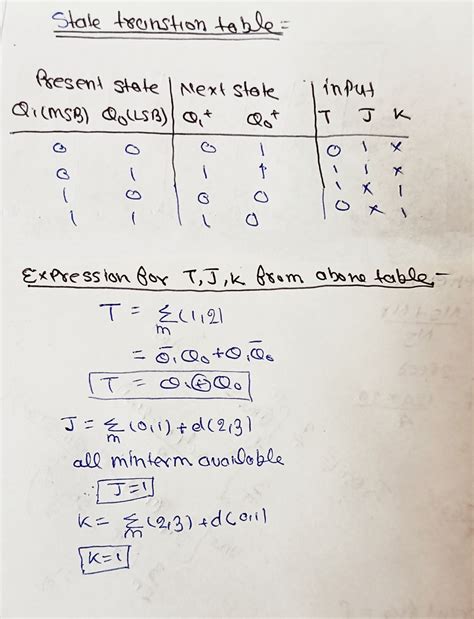 State transtion table=
Present state | Next state | input
Q1(MSB) Q0(LSB) | Q1+ Q0+ | T J K
0 0 | 0 1 | 0 1 x
0 1 | 1 1 | 1 1 x
1 0 | 0 0 | 1 x 1
1 1 | 1 0 | 0 x 1
Expression for T, J, K from above table,-
T = Σm(1,2)
= Q̄1Q0+Q1Q̄0
T = Q1⊕Q0
J = Σm(0,1)+d(2,3)
all minterm available
J=1
K= Σm(2,3)+d(0,1)
K=1